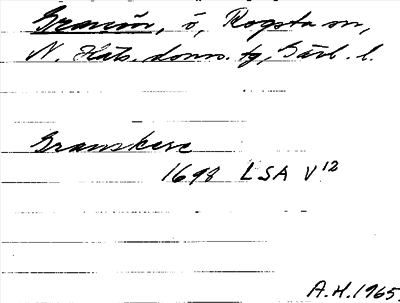 Gransön, ö, Rogsta sn,
N. Häls. doms. tg, Gävl. l.
Granskere
1698 LSA V12
A.H. 1965.